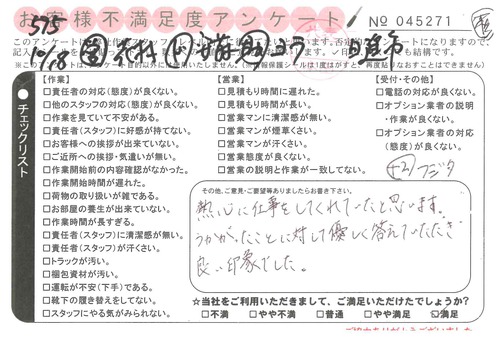 お客様不満足度アンケート
No 045271
575
10/18
【作業】
□責任者の対応(態度)が良くない。
□他のスタッフの対応(態度)が良くない。
□作業を見ていて不安がある。
□責任者(スタッフ)に好感が持てない。
□お客様への挨拶が出来ていない。
□ご近所への挨拶・気遣いが無い。
□作業開始前の内容確認がなかった。
□作業開始時間が遅れた。
□荷物の取り扱いが雑である。
□お部屋の養生が出来ていない。
□作業時間が長すぎる。
□責任者(スタッフ)に清潔感が無い。
□責任者(スタッフ)が汗くさい。
□トラックが汚い。
□梱包資材が汚い。
□運転が不安(下手)である。
□靴下の履き替えをしてない。
□スタッフにやる気がみられない。
チェックリスト
【営業】
□見積もり時間に遅れた。
□見積もり時間が長い。
□営業マンに清潔感が無い。
□営業マンが煙草くさい。
□営業マンが汗くさい。
□営業態度が良くない。
□営業の説明と作業が一致してない。
【受付・その他】
□電話の対応が良くない。
□オプション業者の説明・作業が良くない。
□オプション業者の対応(態度)が良くない。
その他、ご意見・ご要望等ありましたらお書き下さい。
熱心に仕事をしてくれていたと思います。
うかがったことに対して優しく答えていただき
良い印象でした。
☆当社をご利用いただきまして、ご満足いただけたでしょうか?
□不満 □やや不満 □普通 □やや満足 ☑満足